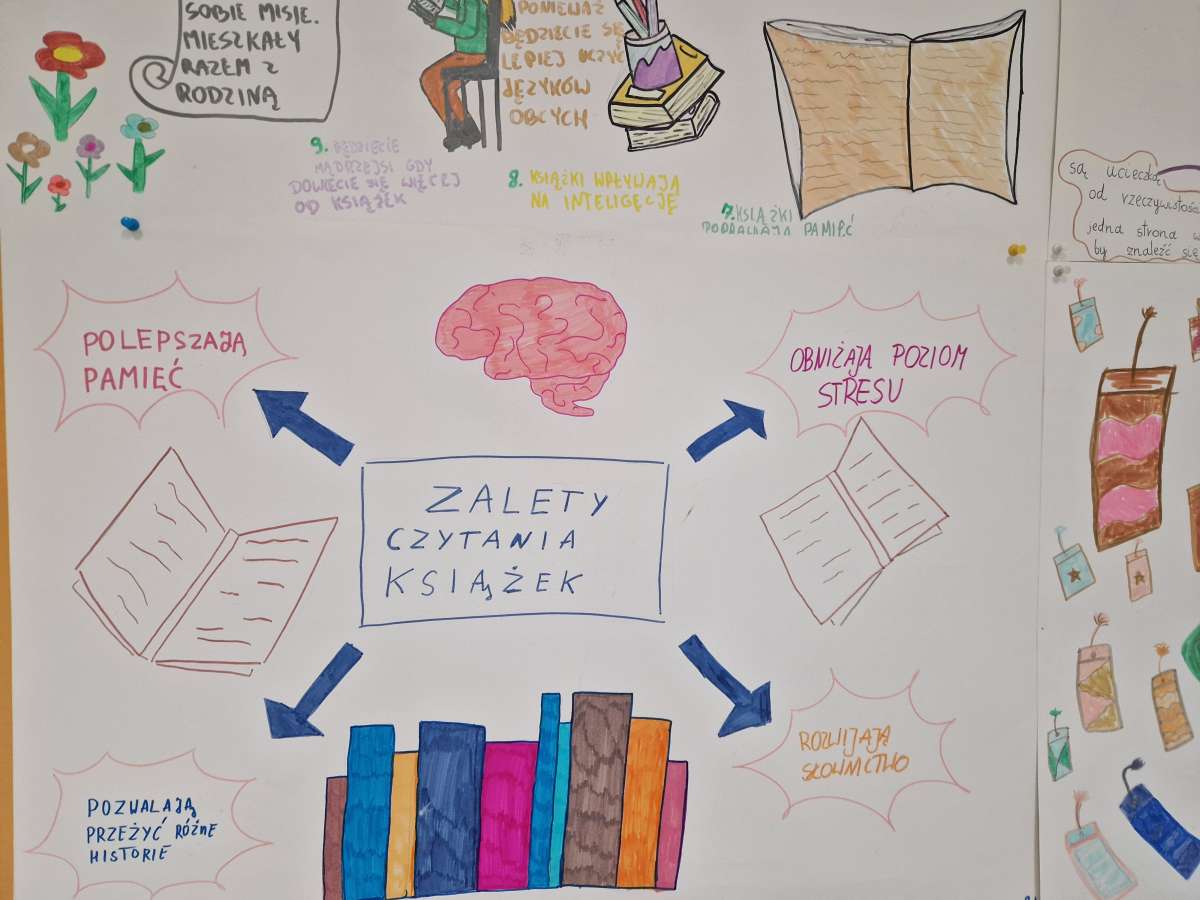 SOBIE MISIE.
MIESZKAŁY
RAZEM Z
RODZINĄ
PONIEWAŻ
BĘDZIECIE SIĘ
LEPIEJ UCZYĆ
JĘZYKÓW
OBCYCH
9. BĘDZIECIE
MĄDRZEJSI GDY
DOWIECIE SIĘ WIĘCEJ
OD KSIĄŻEK
8. KSIĄŻKI WPŁYWAJĄ
NA INTELIGĘCJĘ
7. KSIĄŻKI
POPRAWIAJĄ PAMIĘĆ
są ucieczką
od rzeczywistości
jedna strona
by znaleźć się
POLEPSZAJĄ
PAMIĘĆ
OBNIŻAJĄ POZIOM
STRESU
ZALETY
CZYTANIA
KSIĄŻEK
POZWALAJĄ
PRZEŻYĆ RÓŻNE
HISTORIE
ROZWIJAJĄ
SŁOWNICTWO